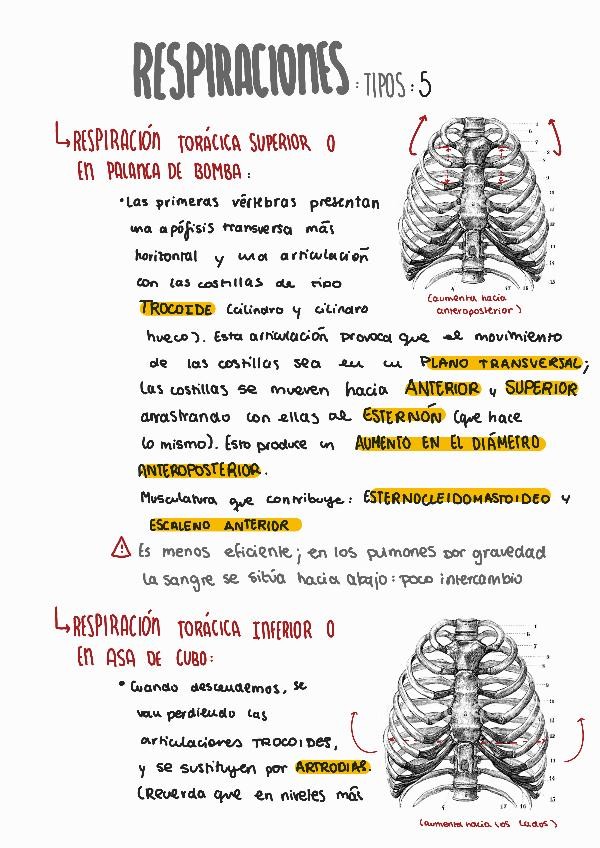 RESPIRACIONES : TIPOS : 5
↳ RESPIRACIÓN TORÁCICA SUPERIOR O
EN PALANCA DE BOMBA :
• Las primeras vértebras presentan
una apófisis transversa más
horizontal y una articulación
con las costillas de tipo
TROCOIDE (cilindro y cilindro
(aumenta hacia
anteroposterior)
hueco). Esta articulación provoca que el movimiento
de las costillas sea en un PLANO TRANSVERSAL;
las costillas se mueven hacia ANTERIOR y SUPERIOR
arrastrando con ellas al ESTERNÓN (que hace
lo mismo). Esto produce un AUMENTO EN EL DIÁMETRO
ANTEROPOSTERIOR.
Musculatura que contribuye: ESTERNOCLEIDOMASTOIDEO y
ESCALENO ANTERIOR
⚠ Es menos eficiente; en los pulmones por gravedad
la sangre se sitúa hacia abajo: poco intercambio
↳ RESPIRACIÓN TORÁCICA INFERIOR O
EN ASA DE CUBO:
• Cuando descendemos, se
van perdiendo las
articulaciones TROCOIDES,
y se sustituyen por ARTRODIAS.
(Recuerda que en niveles más
(aumenta hacia los lados)